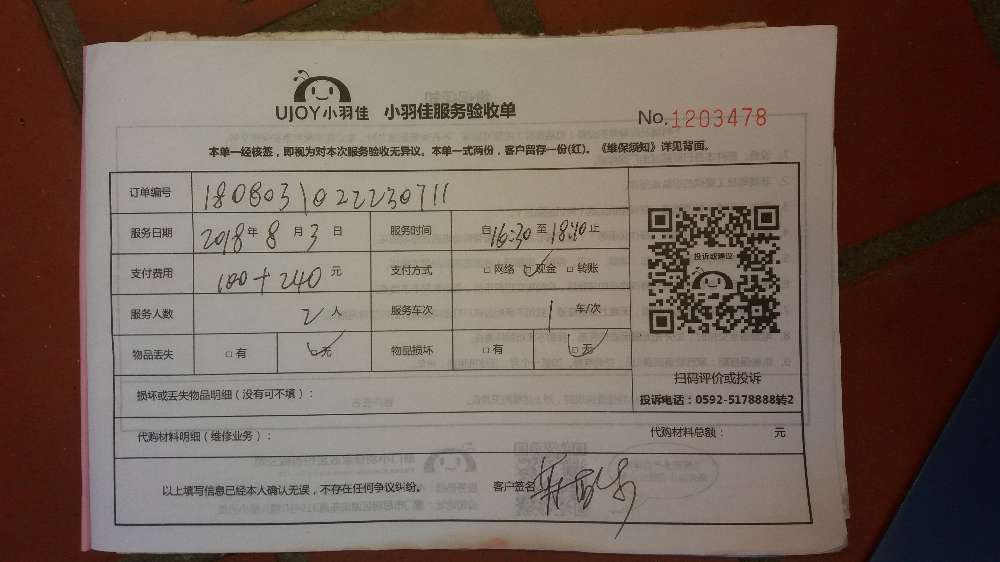 UJOY小羽佳 小羽佳服务验收单
No.1203478
本单一经核签，即视为对本次服务验收无异议。本单一式两份，客户留存一份(红)。《维保须知》详见背面。
订单编号 1808031022230711
服务日期 2018年8月3日 服务时间 自16:30至18:40止
支付费用 100+240元 支付方式 □网络 □现金 □转账
服务人数 2人 服务车次 1车/次
物品丢失 □有 □无 物品损坏 □有 □无
投诉或建议
扫码评价或投诉
投诉电话：0592-5178888转2
损坏或丢失物品明细（没有可不填）：
代购材料明细（维修业务）： 代购材料总额： 元
以上填写信息已经本人确认无误，不存在任何争议纠纷。 客户签名